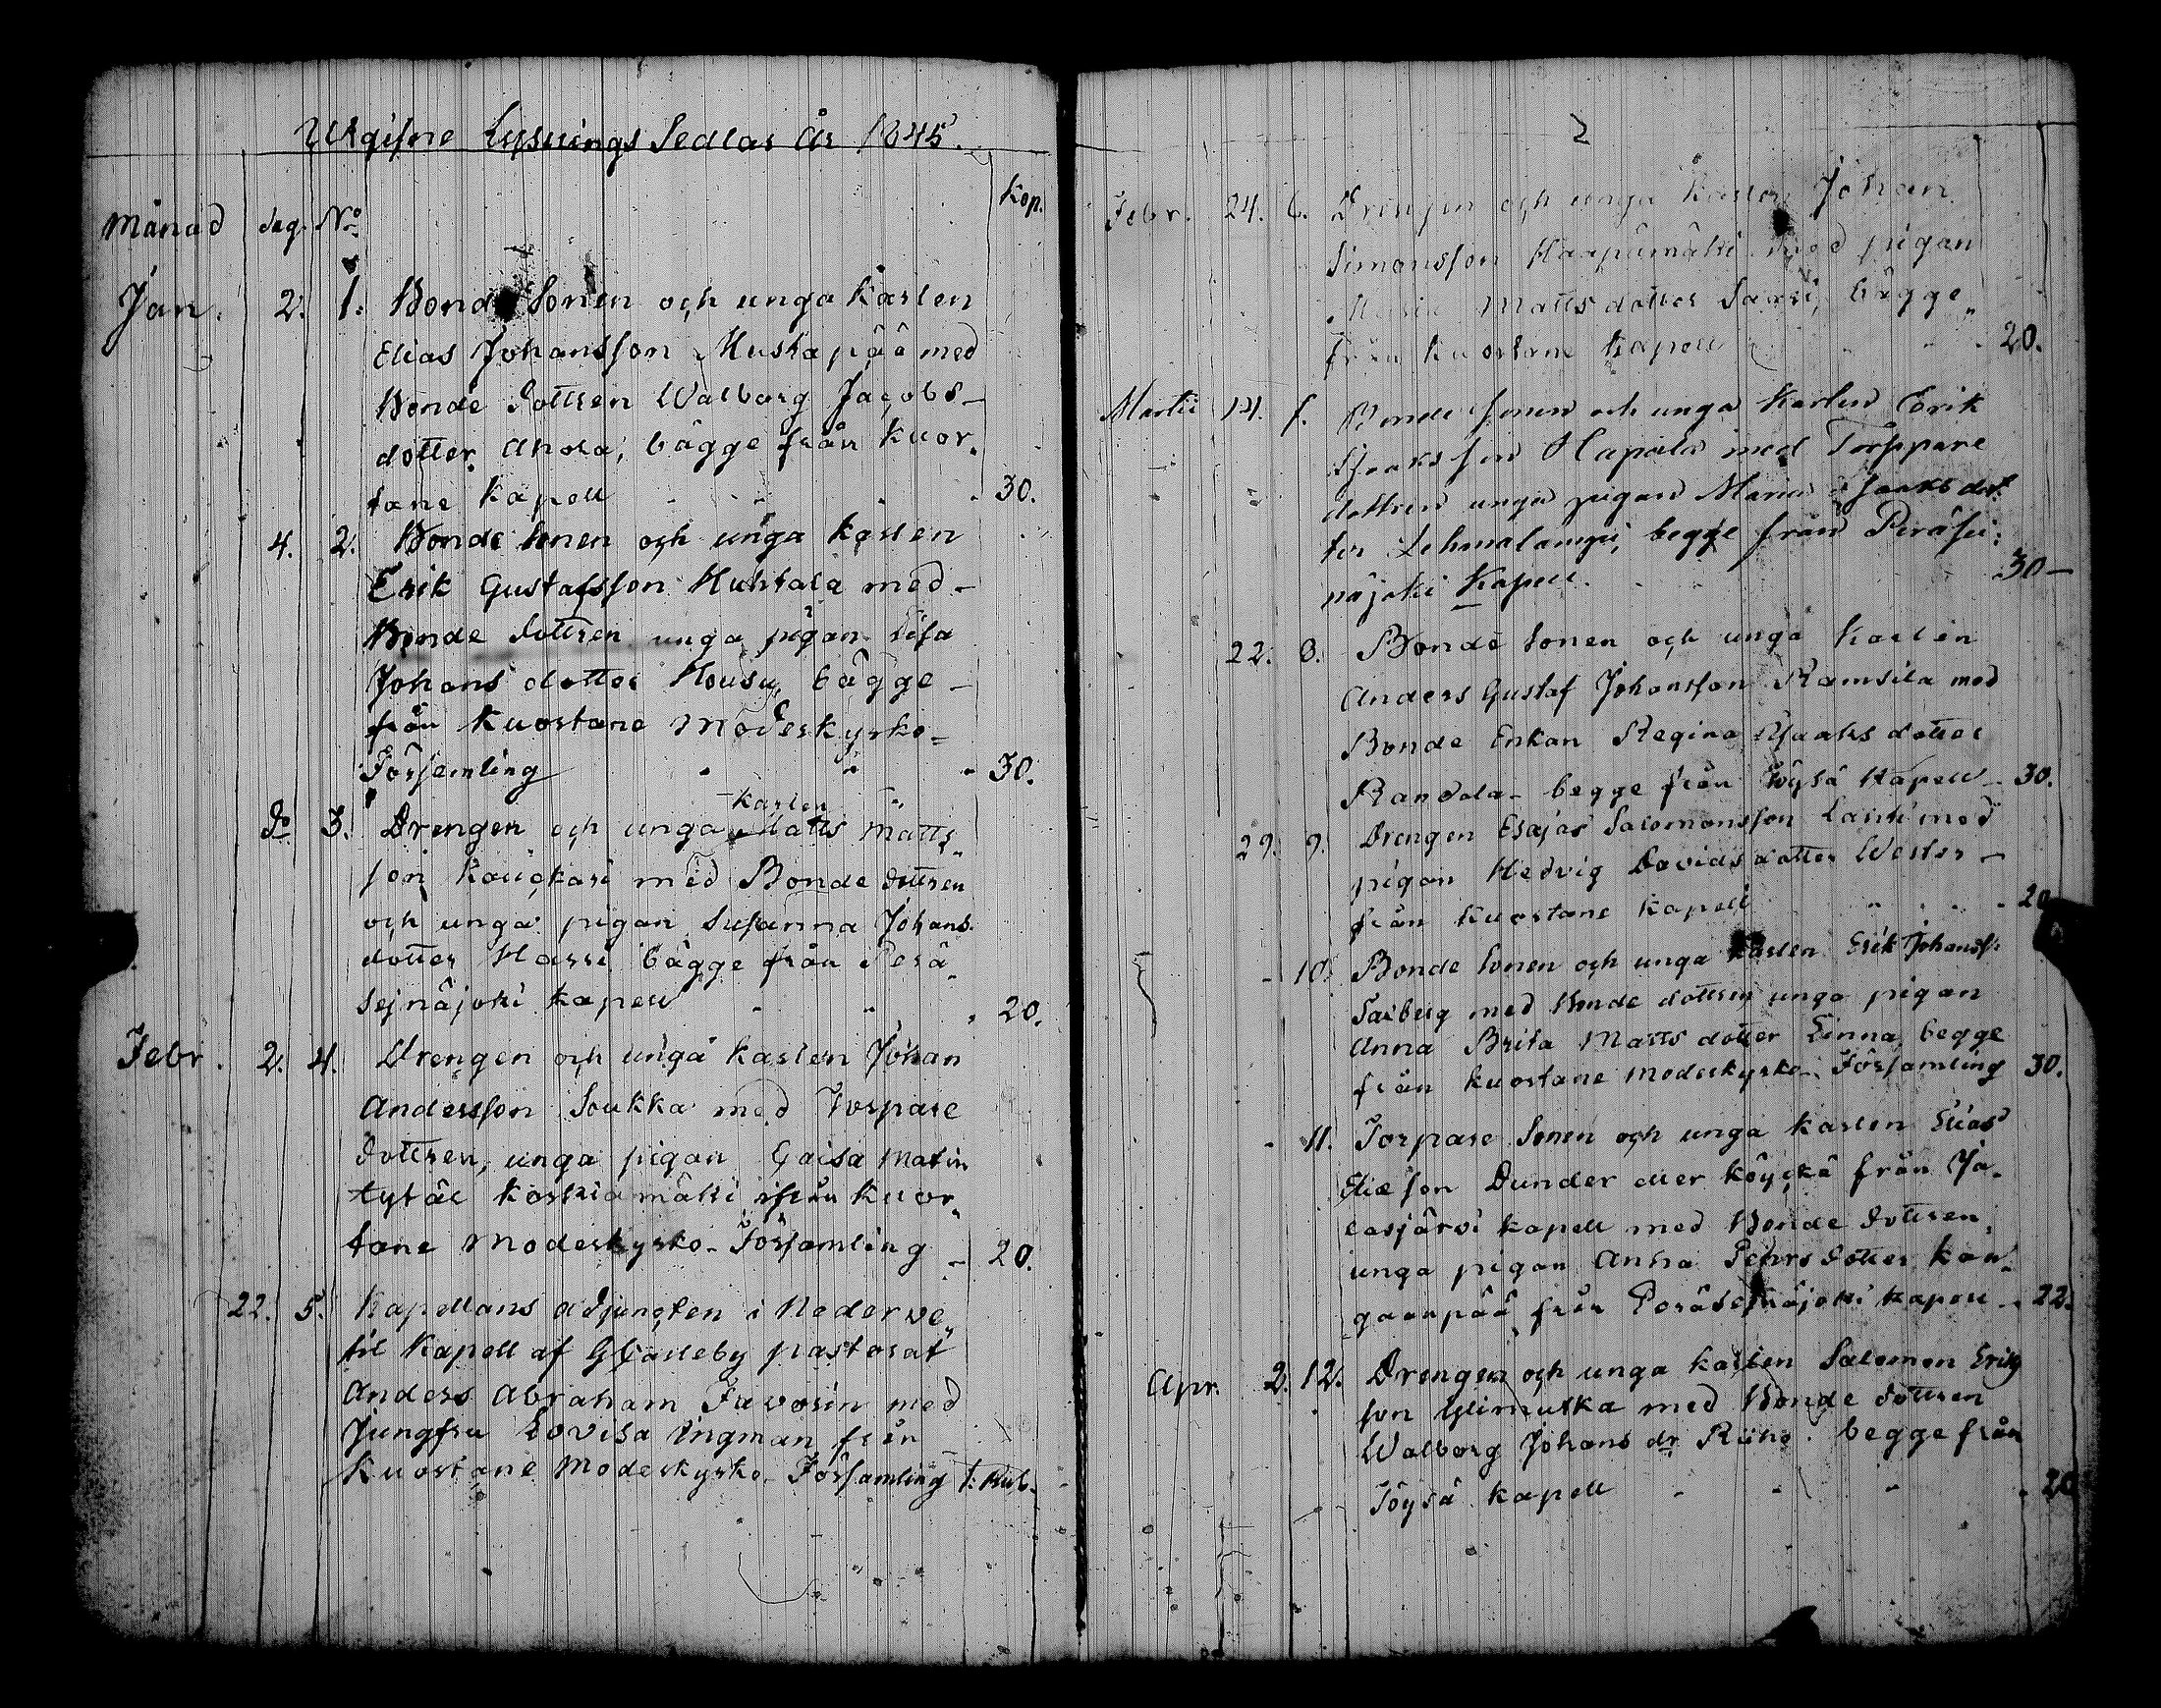 Utgifne Lysnings Sedlar År 1845.
Månad dag. No Kop.
Jan. 2. 1. Bonde Sonen och unga Karlen
Elias Johansson Mustapää med
Bonde Dottren Walborg Jacobs-
dotter Ahola, bägge från Kuor-
tane Kapell - - - 30.
4. 2. Bonde Sonen och unga Karlen
Erik Gustafsson Huhtala med-
Bonde Dottren unga pigan Lisa
Johans dotter Housu, bägge-
från Kuortane Moderkyrko=
Församling - - - 30.
Karlen
do 3. Drengen och unga Matts Matts
son Kouckari med Bonde dottren
och unga pigan Susanna Johans
dotter Harri bägge från Perä
Sejnäjoki Kapell - - - 20.
Febr. 2. 4. Drengen och unga Karlen Johan
Andersson Soukka med Torpare
Dottren, unga pigan Caisa Matin
tytär Koskiamäki ifrån Kuor
tane Moderkyrko-Församling - 20.
22. 5. Kapellans adjungten i Nederve
til Kapell af GCarleby pastorat
Anders Abraham Favorin med
Jungfru Lovisa Ingman från
Kuortane Moderkyrko-Församling 1: Rub.
2
Febr. 24. 6. Drengen och unga Karlen Johan
Simonsson Haapamäki med pigan
Maria Matts dotter Saari, bägge
från Kuortane Kapell - - 20.
Martii 14. 7. Bonde sonen och unga Karlen Erik
Isaaksson Hapala med Torppare
dottren unga pigan Maria Isaaks dot
ter Lehmalampi, begge från Peräsei:
näjoki Kapell. 30-
22. 8. Bonde Sonen och unga Karlen
Anders Gustaf Johansson Ramsila med
Bonde Enkan Regina Isaaks dotter
Randala- begge från Töysä Kapell - 30.
29. 9. Drengen Esajas Salomonsson Lahti med
pigan Hedvig Davids dotter Wester-
från Kuortane Kapell - - - 20
- 10. Bonde Sonen och unga Karlen Erik Johanss:
Sarberg med Bonde dottren unga pigan
Anna Brita Matts dotter Linna, begge
från Kuortane Moderkyrko-Församling 30.
- 11. Torpare Sonen och unga Karlen Elias
Eliæson Dunder eller Köyckä från Ja-
lasjärvi Kapell med Bonde dottren,
unga pigan Anna Pehrs dotter Kan-
gaanpää från Peräseinäjoki Kapell - 22.
Apr. 2. 12. Drengen och unga Karlen Salomon Eriks
son Ylimutka med Bonde dottren
Walborg Johans dr Riiho. begge från
Töysä Kapell - - - - 20